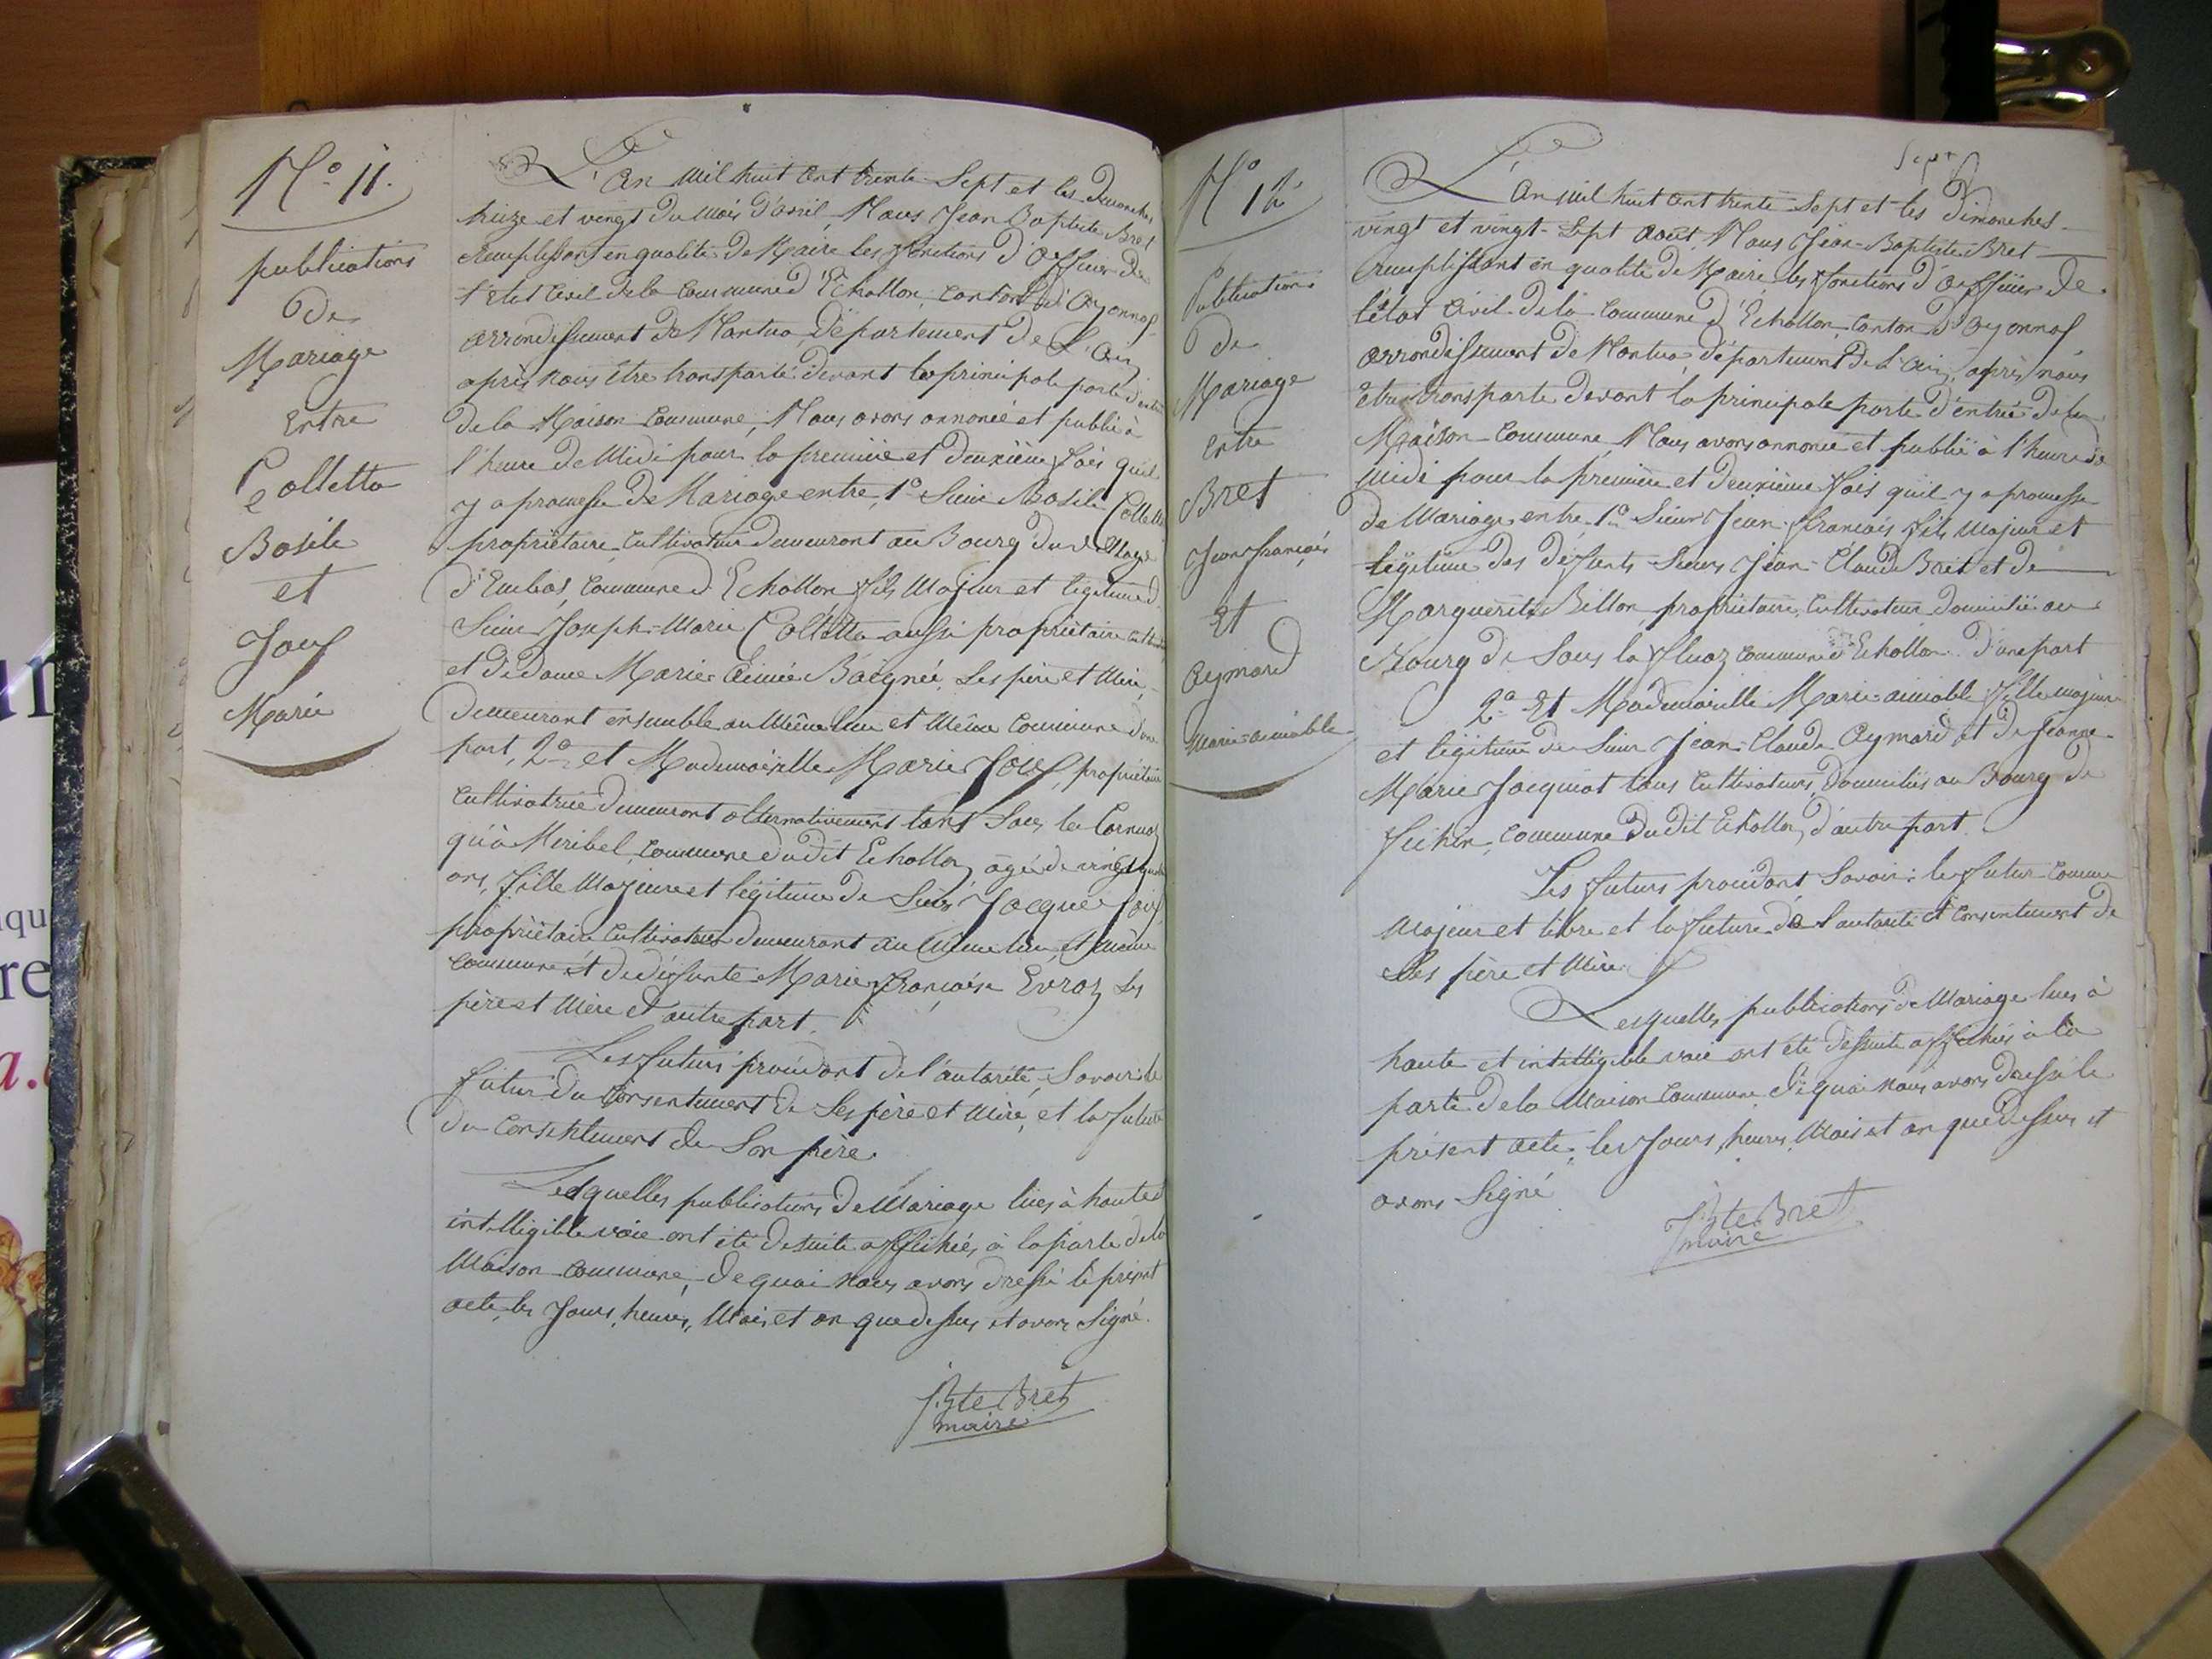 N.° 11.
publications
De
Mariage
Entre
Colletta
Basile
et
Jouf
Marie
L'an mil huit cent trente-Sept et les Dimanches
treize et vingt du Mois d'avril, Nous Jean Baptiste Bret
Remplissant en qualité de Maire les fonctions d'officier de
l'état Civil de la Commune d'Echallon, Canton d'Oyonnax
arrondissement de Nantua, Département de L'Ain
après nous être transporté devant la principale porte d'entrée
de la Maison Commune, Nous avons annoncé et publié à
l'heure de Midi pour la première et deuxième fois qu'il
y a promesse de Mariage entre, 1° Sieur Basile Colletta
propriétaire Cultivateur demeurant au Bourg du village
d'Embas, Commune d'Echallon fils Majeur et légitime de
Sieur Joseph-Marie Colletta aussi propriétaire
et de dame Marie Aimée Baigné Ses père et Mère,
demeurant ensemble au Même lieu et Même Commune d'une
part, 2° et Mademoiselle Marie Jouf, propriétaire
Cultivatrice demeurant alternativement tant Sous la Cornaz
qu'à Miribel, Commune dudit Echallon, âgée de vingt
ans, fille Majeure et légitime de Sieur Jacques Jouf
propriétaire Cultivateur demeurant au Même lieu, et Même
Commune et de défunte Marie Françoise Evroz Ses
père et Mère d'autre part.
Les futurs procédant de l'autorité, Savoir: le
futur du Consentement de Ses père et Mère, et la future
du Consentement de Son père.
Lesquelles publications de Mariage lues à haute et
intelligible voie ont été desuite affichées à la porte de la
Maison Commune, de quoi nous avons dressé le présent
acte, les Jours, heures, Mois et an que dessus et avons Signé.
J. Bte Bret
maire
N° 12
Publications
De
Mariage
Entre
Bret
Jean françois
Et
Aymard
Marie-aimable
Sept
L'an mil huit cent trente-Sept et les Dimanches
vingt et vingt-Sept août, Nous Jean-Baptiste Bret
remplissant en qualité de Maire les fonctions d'officier de
l'état Civil de la Commune d'Echallon, Canton d'Oyonnax
arrondissement de Nantua, département de L'ain, après nous
être transporté devant la principale porte d'entrée de la
Maison Commune, Nous avons annoncé et publié à l'heure de
Midi pour la première et deuxième fois qu'il y a promesse
de Mariage entre, 1° Sieur Jean-françois fils Majeur et
légitime des défunts Sieurs Jean-Claude Bret et de
Marguerite Billon, propriétaire, Cultivateur domicilié au
Bourg de Sous la fluaz Commune d'Echallon d'une part
2° Et Mademoiselle Marie-aimable fille majeure
et légitime de Sieur Jean-Claude Aymard et de Jeanne-
Marie Jacquiot tous Cultivateurs, Domiciliés au Bourg de
Commune du dit Echallon, d'autre part.
Les futurs procédant Savoir: le futur Comme
Majeur et libre et la future de l'autorité et Consentement de
Ses père et Mère.
Lesquelles publications de Mariage lues à
haute et intelligible voie ont été desuite affichées à la
porte de la Maison Commune, de quoi nous avons dressé le
présent acte, les Jours, heures, Mois et an que dessus et
avons Signé
J. Bte Bret
maire